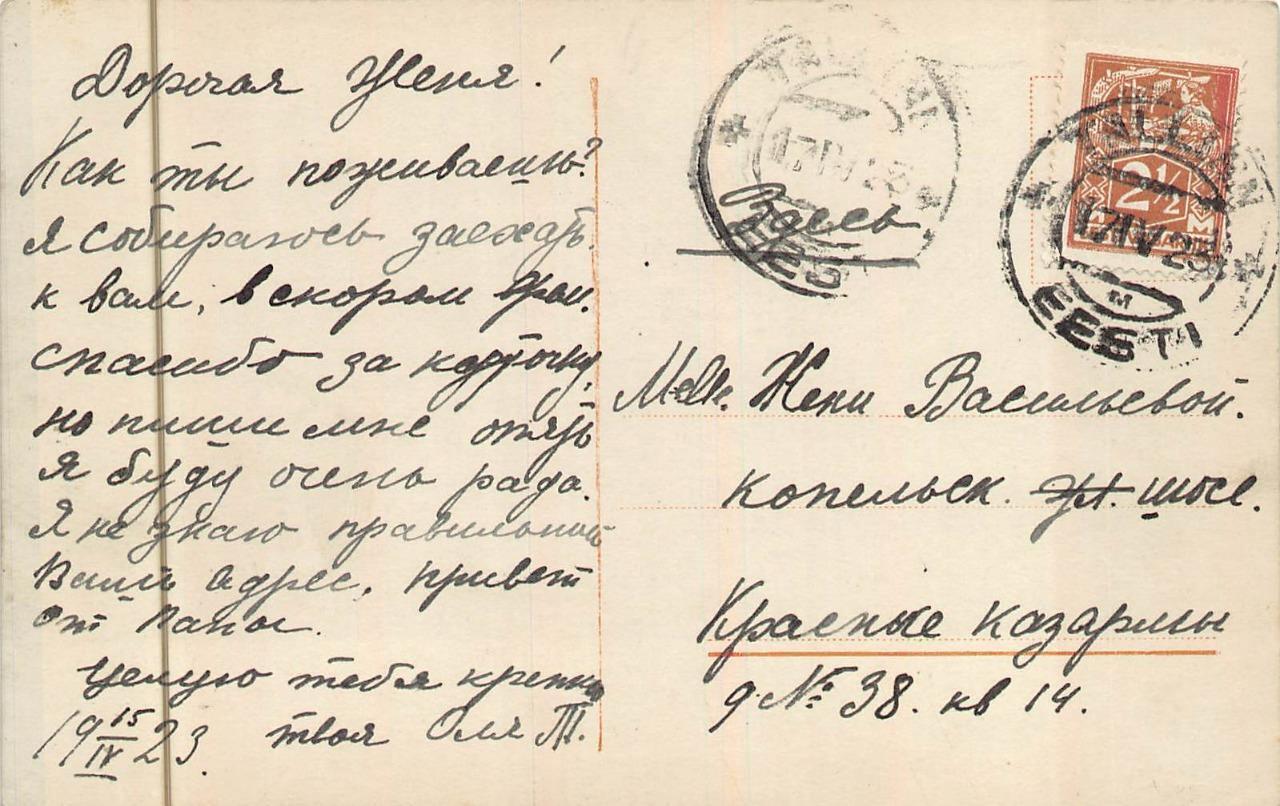 Дорогая Женя!
Как ты поживаешь?
Я собираюсь заехать
к вам, в скором
спасибо за карточку,
но пиши мне опять
я буду очень рада.
Я не знаю правильной
Ваш адрес, привет
от Папы.
Целую тебя крепко
19 15/IV 23. твоя Оля Т.
TALLINN
17 IV 23
EESTI
Здесь
TALLINN
17 IV 23
EESTI
2½
Melle. Жени Васильевой.
Копельск. ул. шосс.
Красные казармы
д. № 38. кв 14.